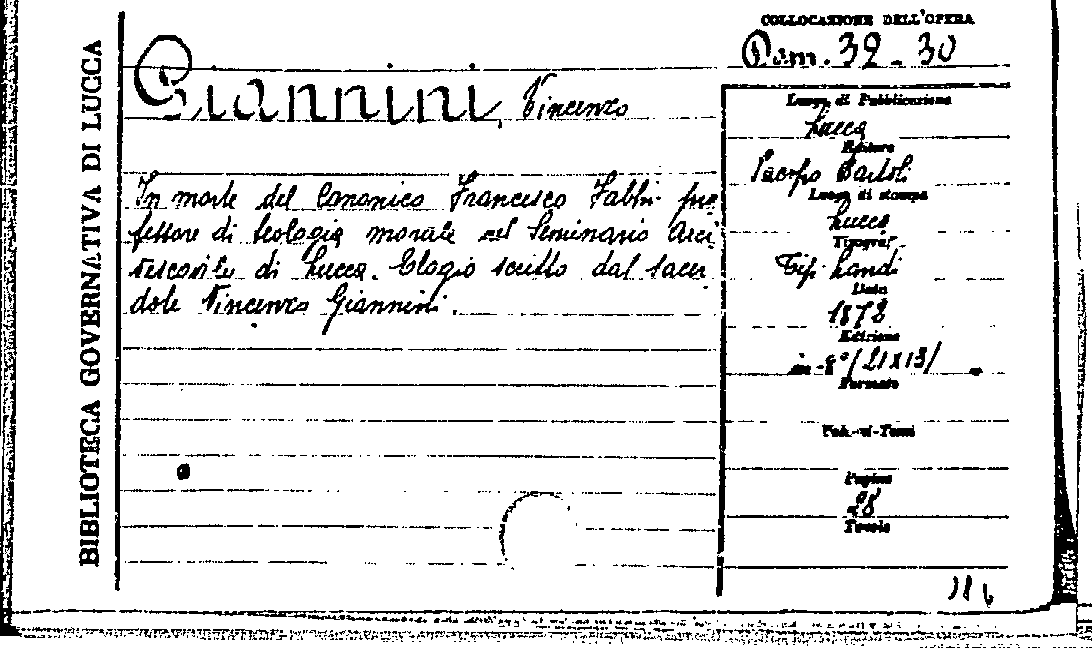 BIBLIOTECA GOVERNATIVA DI LUCCA
COLLOCAZIONE DELL'OPERA
Dom. 32 - 30
Giannini, Vincenzo
In morte del Canonico Francesco Fabbri pro
fessore di teologia morale nel Seminario Arci
vescovile di Lucca. Elogio scritto dal sacer
dote Vincenzo Giannini.
Luogo di Pubblicazione
Lucca
Editore
Jacopo Bartoli
Luogo di stampa
Lucca
Tipograf
Tip. Landi
Data
1872
Edizione
in-8°/21x13/
Formato
Vol.-vi-Tomi
Pagine
28
Tavole